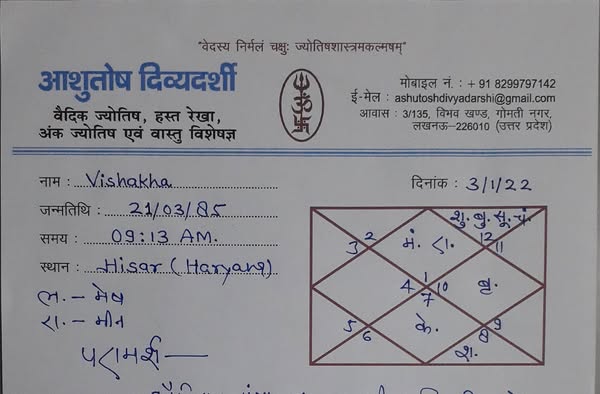 “वेदस्य निर्मलं चक्षुः ज्योतिषशास्त्रमकल्मषम्”
आशुतोष दिव्यदर्शी
वैदिक ज्योतिष, हस्त रेखा,
अंक ज्योतिष एवं वास्तु विशेषज्ञ
मोबाइल नं. : + 91 8299797142
ई-मेल : ashutoshdivyadarshi@gmail.com
आवास : 3/135, विभव खण्ड, गोमती नगर,
लखनऊ-226010 (उत्तर प्रदेश)
नाम : Vishakha
दिनांक : 3/1/22
जन्मतिथि : 21/03/85
समय : 09:13 AM.
स्थान : Hisar (Haryana)
ल. – मेष
रा. – मीन
शु. बु. सू. चं.
3 2 मं. रा. 12 11
1
4 10 बृ.
7
5 6 के. 8 9
श.
परामर्श —